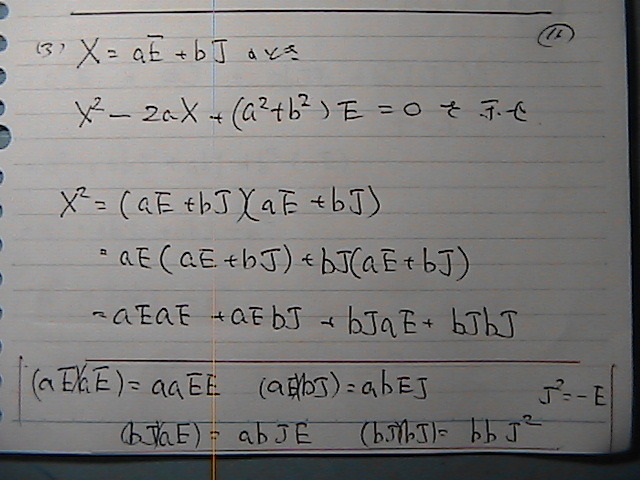 (3) X = aE + bJ のとき
X² - 2aX + (a² + b²) E = 0 を示せ
X² = (aE + bJ)(aE + bJ)
= aE(aE + bJ) + bJ(aE + bJ)
= aEaE + aEbJ + bJaE + bJbJ
(aE)(aE) = aaEE (aE)(bJ) = abEJ J² = -E
(bJ)(aE) = abJE (bJ)(bJ) = bbJ²